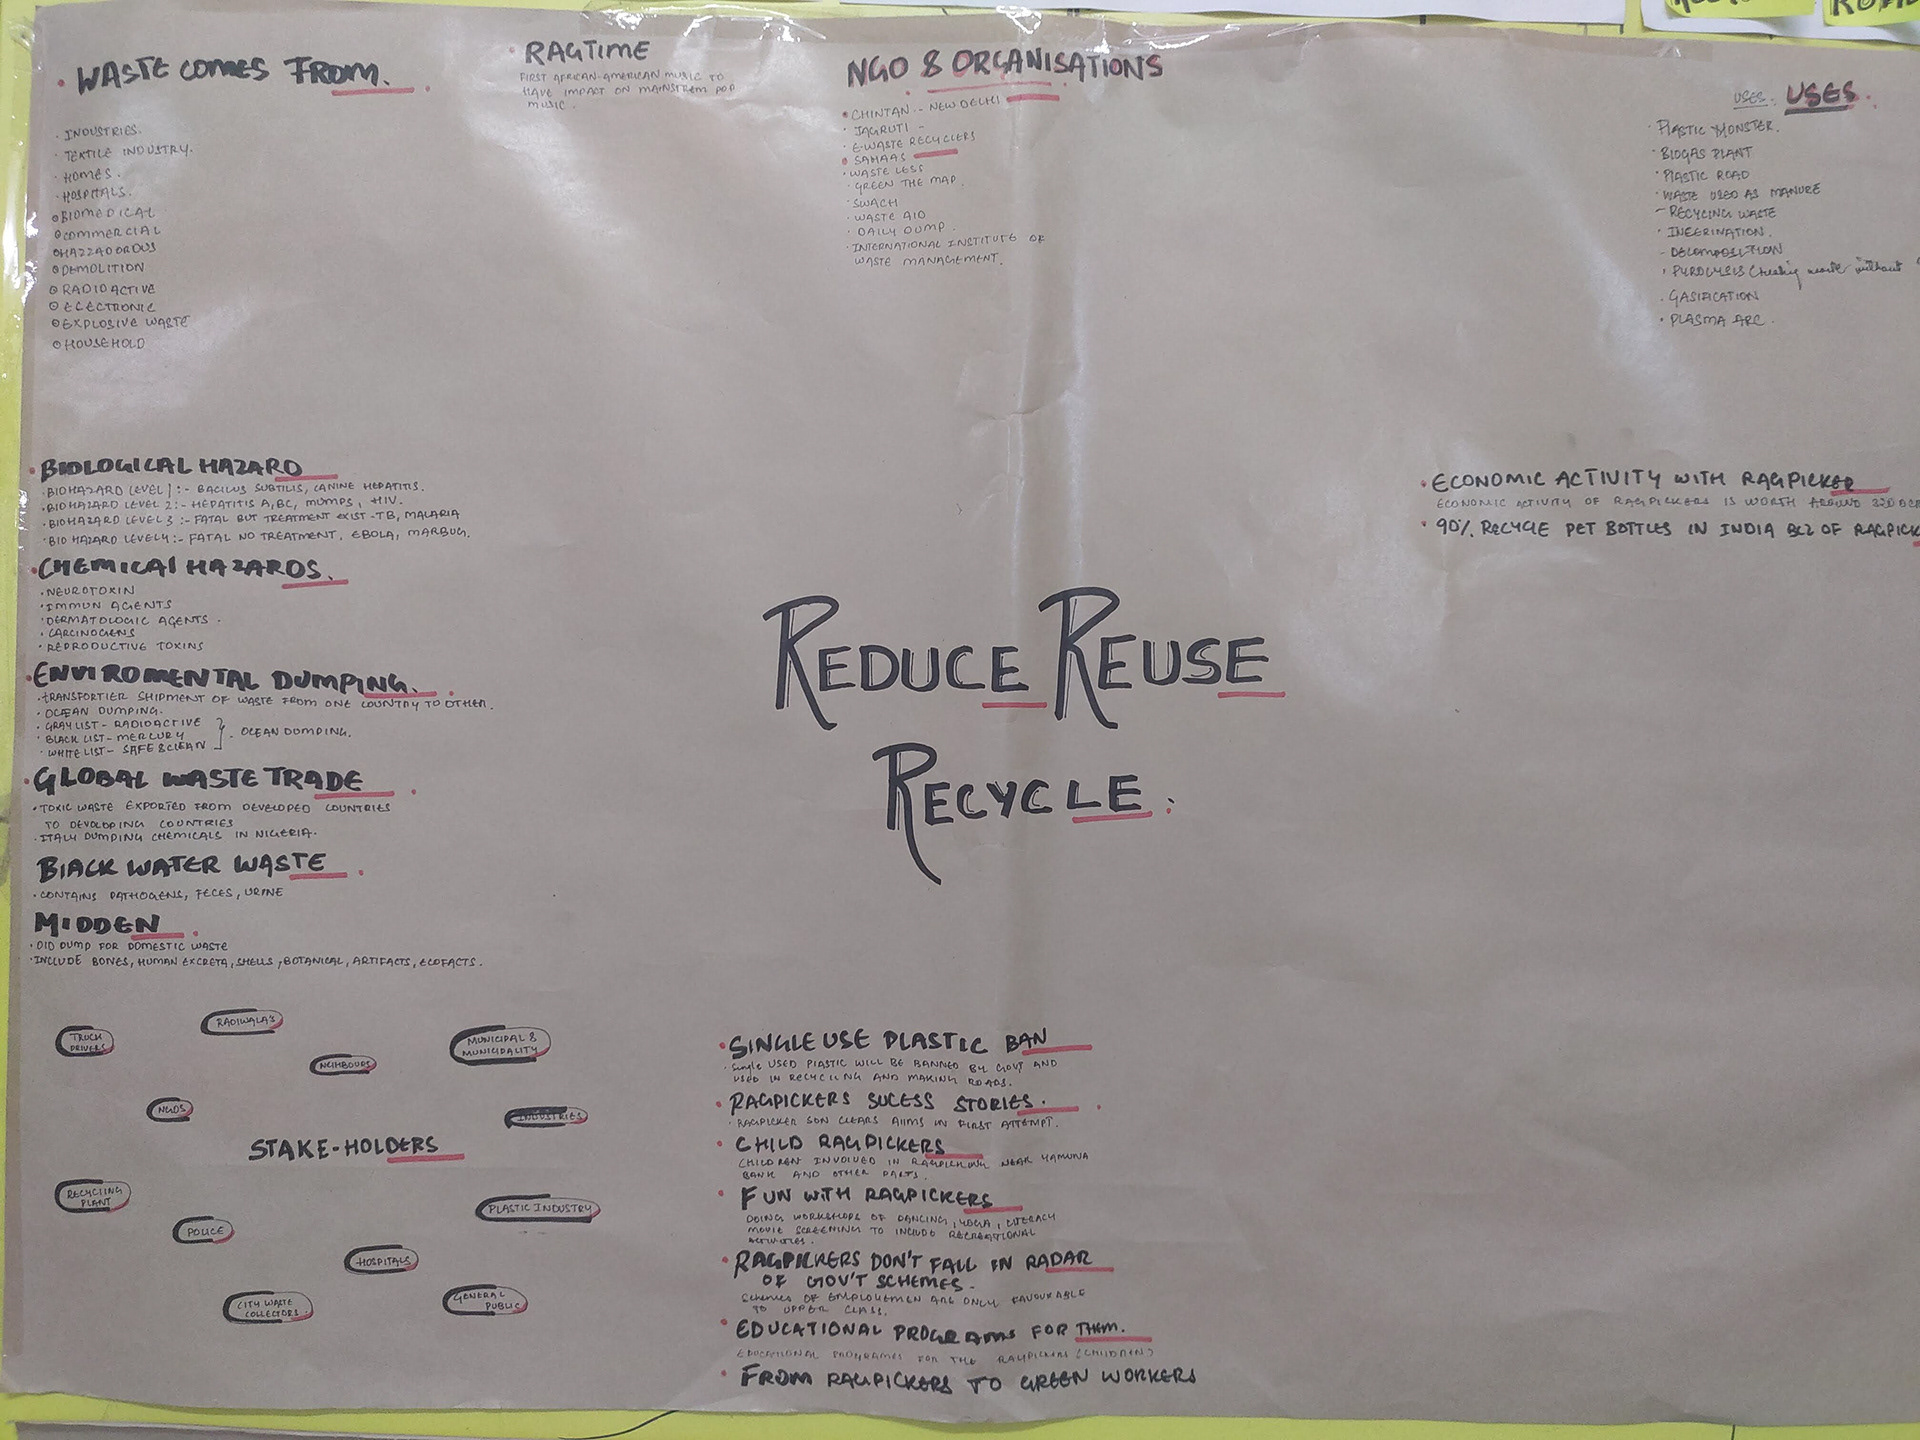 • WASTE COMES FROM.
· INDUSTRIES.
· TEXTILE INDUSTRY.
· HOMES.
· HOSPITALS.
BIOMEDICAL
COMMERCIAL
HAZZADORDUS
DEMOLITION
RADIOACTIVE
ELECTRONIC
EXPLOSIVE WASTE
HOUSEHOLD
• RAGTIME
FIRST AFRICAN-AMERICAN MUSIC TO
HAVE IMPACT ON MAINSTREM POP
MUSIC.
NGO & ORGANISATIONS
• CHINTAN - NEW DELHI
· JAGRUTI -
· E-WASTE RECYCLERS
• SAHAAS
· WASTE LESS
· GREEN THE MAP.
· SWACH
· WASTE AID
· DAILY DUMP.
· INTERNATIONAL INSTITUTE OF
WASTE MANAGEMENT.
USES. USES.
· PLASTIC MONSTER.
· BIOGAS PLANT
· PLASTIC ROAD
· WASTE USED AS MANURE
- RECYCING WASTE
· INEERINATION.
- DECOMPOSITION
· PYROLYSIS (                 waste without
· GASIFICATION
· PLASMA ARC.
• BIOLOGICAL HAZARD
· BIOHAZARD LEVEL 1:- BACILUS SUBTILIS, CANINE HEPATITIS.
· BIOHAZARD LEVEL 2:- HEPATITIS A,BC, MUMPS, HIV.
· BIOHAZARD LEVEL 3:- FATAL BUT TREATMENT EXIST-TB, MALARIA
· BIO HAZARD LEVEL4:- FATAL NO TREATMENT, EBOLA, MARBUG.
• CHEMICAL HAZARDS.
· NEUROTOXIN
· IMMUN AGENTS
· DERMATOLOGIC AGENTS.
· CARCINOGENS
· REPRODUCTIVE TOXINS
• ENVIROMENTAL DUMPING.
· TRANSFORTIER SHIPMENT OF WASTE FROM ONE COUNTRY TO OTHER.
· OCEAN DUMPING.
· GRAY LIST- RADIOACTIVE
· BLACK LIST- MERCURY } . OCEAN DUMPING.
· WHITE LIST- SAFE & CLEAN
• GLOBAL WASTE TRADE
· TOXIC WASTE EXPORTED FROM DEVELOPED COUNTRIES
TO DEVOLOPING COUNTRIES
· ITALY DUMPING CHEMICALS IN NIGERIA.
BLACK WATER WASTE.
· CONTAINS PATHOGENS, FECES, URINE
MIDDEN.
· OLD DUMP FOR DOMESTIC WASTE
· INCLUDE BONES, HUMAN EXCRETA, SHELLS, BOTANICAL, ARTIFACTS, ECOFACTS.
• ECONOMIC ACTIVITY WITH RAGPICKER
ECONOMIC ACTIVITY OF RAGPICKERS IS WORTH AROUND
• 90% RECYCLE PET BOTTLES IN INDIA BCZ OF RAGPICK
REDUCE REUSE
RECYCLE.
TRUCK
DRIVERS
RADIWALA'S
NEIHBOURS
MUNICIPAL &
MUNICIPALITY
NGOS
INDUSTRIES
STAKE-HOLDERS
RECYCLING
PLANT
POLICE
PLASTIC INDUSTRY
HOSPITALS
CITY WASTE
COLLECTORS
GENERAL
PUBLIC
• SINGLE USE PLASTIC BAN
· Single USED PLASTIC WILL BE BANNED BY GOVT AND
USED IN RECYCLING AND MAKING ROADS.
• RAGPICKERS SUCESS STORIES.
· RAGPICKER SON CLEARS AIIMS IN FIRST ATTEMPT.
• CHILD RAGPICKERS
CHILDREN INVOLVED IN RAGPICKING NEAR YAMUNA
BANK AND OTHER PARTS.
• FUN WITH RAGPICKERS
DOING WORKSHOPS OF DANCING, YOGA, LITERACY
MOVIE SCREENING TO INCLUDE RECREATIONAL
ACTIVITIES.
• RAGPICKERS DON'T FALL IN RADAR
OF GOV'T SCHEMES.
SCHEMES OF EMPLOYEMEN ARE ONLY FAVOURABLE
TO UPPER CLASS.
• EDUCATIONAL PROGRAMS FOR THEM.
EDUCATIONAL PROGRAMES FOR THE RAGPICKERS (CHILDREN)
• FROM RAGPICKERS TO GREEN WORKERS